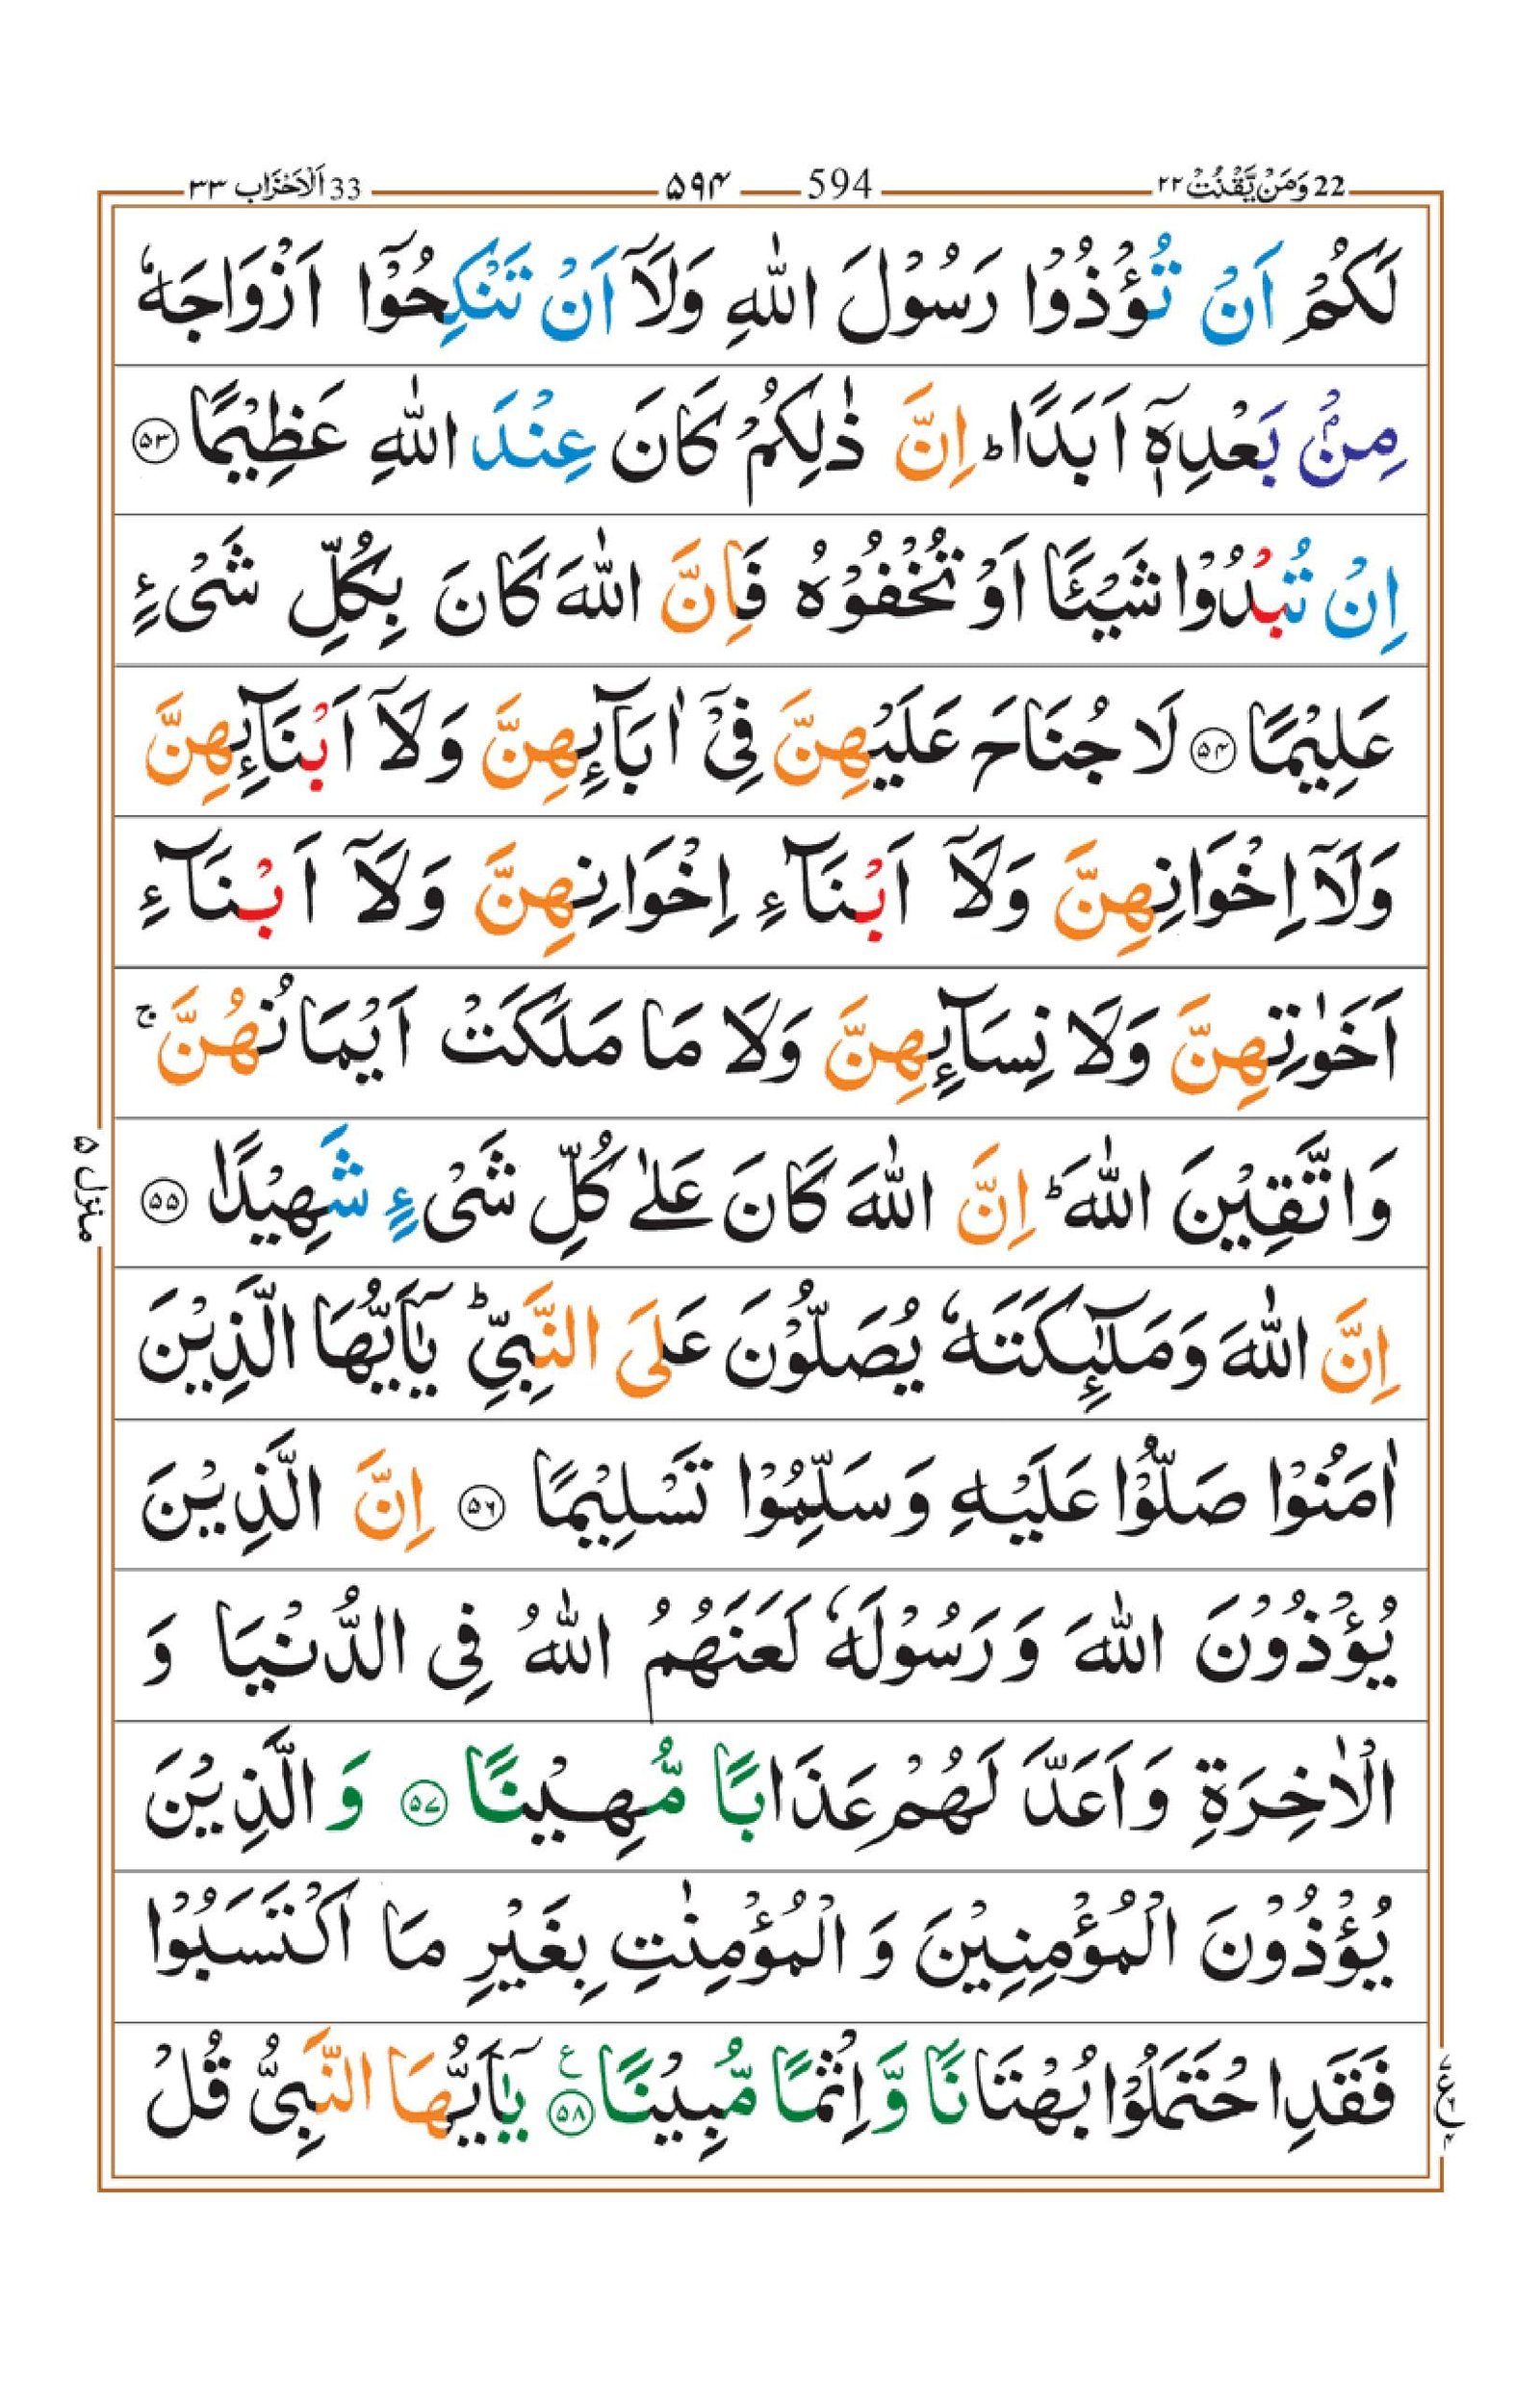 22 وَمَنْ يَّقْنُتْ ٢٢ 594 ۵۹۴ 33 اَلْاَحْزَاب ٣٣
لَكُمْ اَنْ تُؤْذُوْا رَسُوْلَ اللّٰهِ وَلَاۤ اَنْ تَنْكِحُوْۤا اَزْوَاجَهٗ
مِنْۢ بَعْدِهٖۤ اَبَدًا ؕ اِنَّ ذٰلِكُمْ كَانَ عِنْدَ اللّٰهِ عَظِيْمًا ۝۵۳
اِنْ تُبْدُوْا شَيْـًٔا اَوْ تُخْفُوْهُ فَاِنَّ اللّٰهَ كَانَ بِكُلِّ شَیْءٍ
عَلِيْمًا ۝۵۴ لَا جُنَاحَ عَلَيْهِنَّ فِیْۤ اٰبَآئِهِنَّ وَلَاۤ اَبْنَآئِهِنَّ
وَلَاۤ اِخْوَانِهِنَّ وَلَاۤ اَبْنَآءِ اِخْوَانِهِنَّ وَلَاۤ اَبْنَآءِ
اَخَوٰتِهِنَّ وَلَا نِسَآئِهِنَّ وَلَا مَا مَلَكَتْ اَيْمَانُهُنَّ ۚ
وَاتَّقِيْنَ اللّٰهَ ؕ اِنَّ اللّٰهَ كَانَ عَلٰى كُلِّ شَیْءٍ شَهِيْدًا ۝۵۵
اِنَّ اللّٰهَ وَمَلٰٓئِكَتَهٗ يُصَلُّوْنَ عَلَى النَّبِیِّ ؕ يٰۤاَيُّهَا الَّذِيْنَ
اٰمَنُوْا صَلُّوْا عَلَيْهِ وَسَلِّمُوْا تَسْلِيْمًا ۝۵۶ اِنَّ الَّذِيْنَ
يُؤْذُوْنَ اللّٰهَ وَرَسُوْلَهٗ لَعَنَهُمُ اللّٰهُ فِی الدُّنْيَا وَ
الْاٰخِرَةِ وَاَعَدَّ لَهُمْ عَذَابًا مُّهِيْنًا ۝۵۷ وَالَّذِيْنَ
يُؤْذُوْنَ الْمُؤْمِنِيْنَ وَ الْمُؤْمِنٰتِ بِغَيْرِ مَا اكْتَسَبُوْا
فَقَدِ احْتَمَلُوْا بُهْتَانًا وَّاِثْمًا مُّبِيْنًا ۝۵۸ ع يٰۤاَيُّهَا النَّبِیُّ قُلْ
منزل ۵